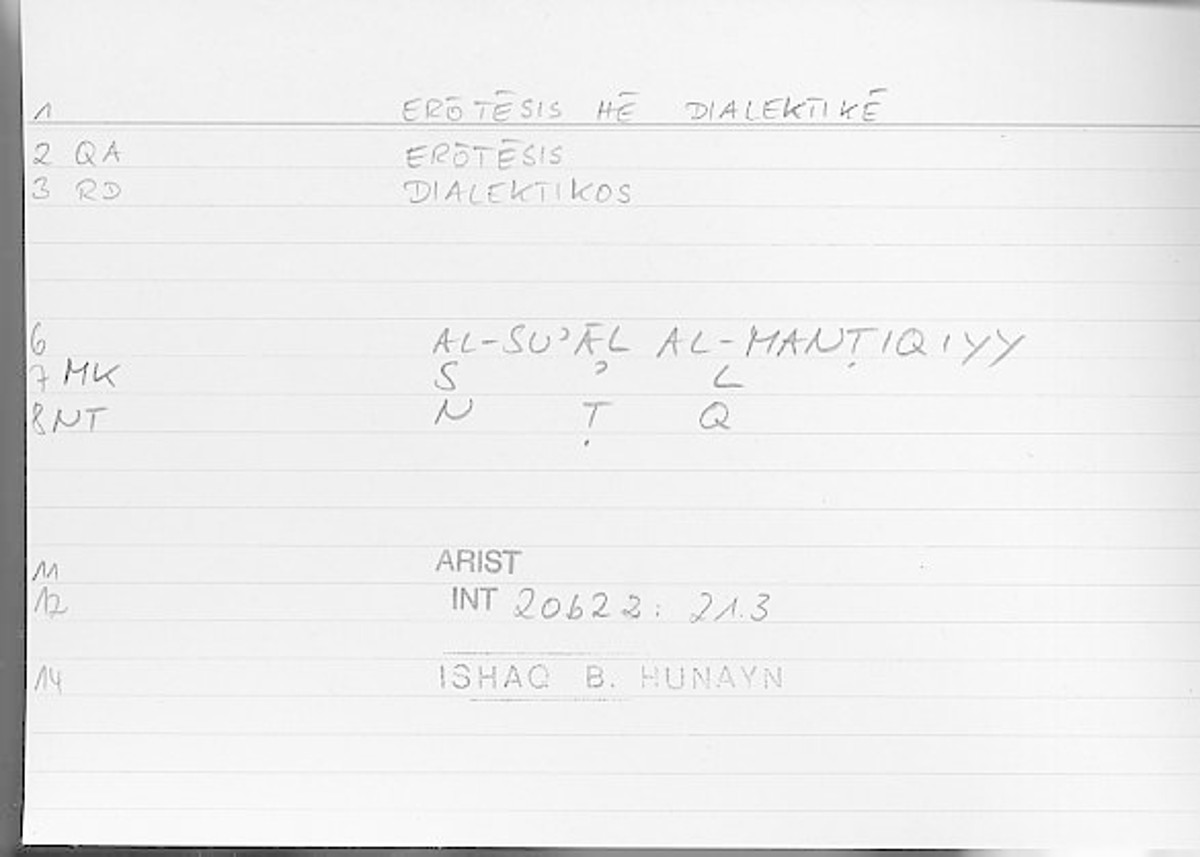 1 ERŌTĒSIS HĒ DIALEKTIKĒ
2 QA ERŌTĒSIS
3 RD DIALEKTIKOS
6 AL-SUʾĀL AL-MANṬIQIYY
7 MK S ʾ L
8 NT N Ṭ Q
11 ARIST
12 INT 20b22: 21.3
14 ISHAQ B. HUNAYN